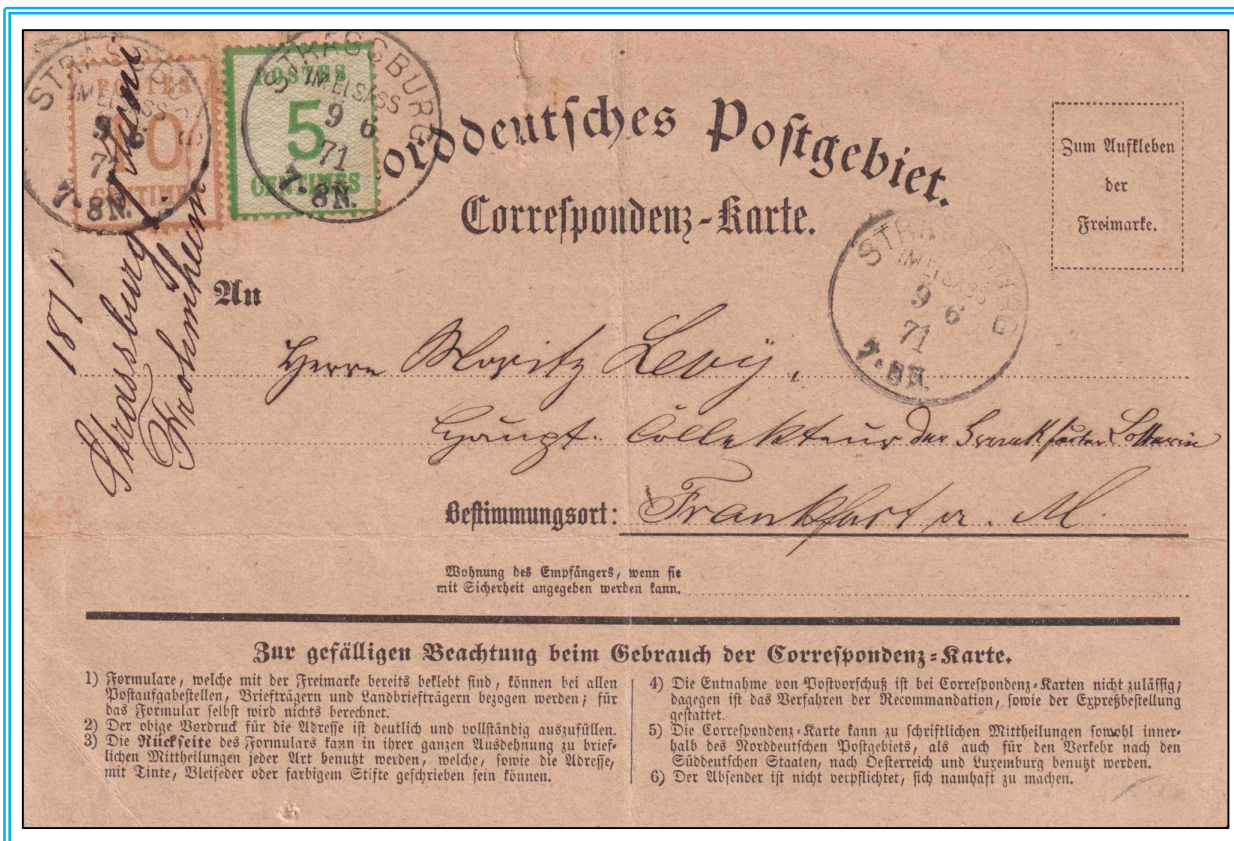 POSTES
10
CENTIMES
STRASSBURG
IM ELSASS
9 6
71
7-8N.
POSTES
5
CENTIMES
STRASSBURG
IM ELSASS
9 6
71
7-8N.
Norddeutsches Postgebiet.
Correspondenz-Karte.
Zum Aufkleben
der
Freimarke.
STRASSBURG
IM ELSASS
9 6
71
7-8N.
1871
Strassburg 9 Juni
An
Herrn Moritz Levy,
Haupt-Collekteur der Frankfurter Lotterie
Bestimmungsort: Frankfurt a. M.
Wohnung des Empfängers, wenn sie
mit Sicherheit angegeben werden kann.
Zur gefälligen Beachtung beim Gebrauch der Correspondenz-Karte.
1) Formulare, welche mit der Freimarke bereits beklebt sind, können bei allen
Postaufgabestellen, Briefträgern und Landbriefträgern bezogen werden; für
das Formular selbst wird nichts berechnet.
2) Der obige Vordruck für die Adresse ist deutlich und vollständig auszufüllen.
3) Die Rückseite des Formulars kann in ihrer ganzen Ausdehnung zu brief-
lichen Mittheilungen jeder Art benutzt werden, welche, sowie die Adresse,
mit Tinte, Bleifeder oder farbigem Stifte geschrieben sein können.
4) Die Entnahme von Postvorschuß ist bei Correspondenz-Karten nicht zulässig;
dagegen ist das Verfahren der Recommandation, sowie der Expreßbestellung
gestattet.
5) Die Correspondenz-Karte kann zu schriftlichen Mittheilungen sowohl inner-
halb des Norddeutschen Postgebiets, als auch für den Verkehr nach den
Süddeutschen Staaten, nach Oesterreich und Luxemburg benutzt werden.
6) Der Absender ist nicht verpflichtet, sich namhaft zu machen.